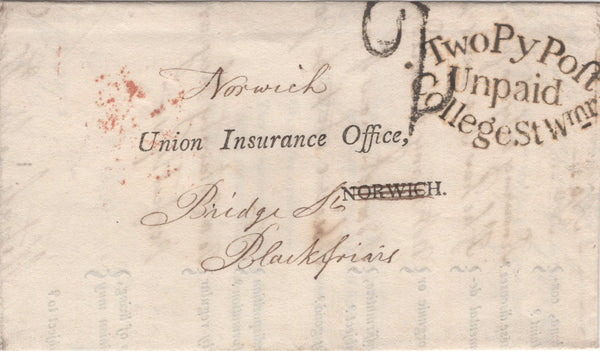 2
TwoPyPost
Unpaid
CollegeStWmr
Norwich
Union Insurance Office,
NORWICH.
Bridge St
Blackfriars